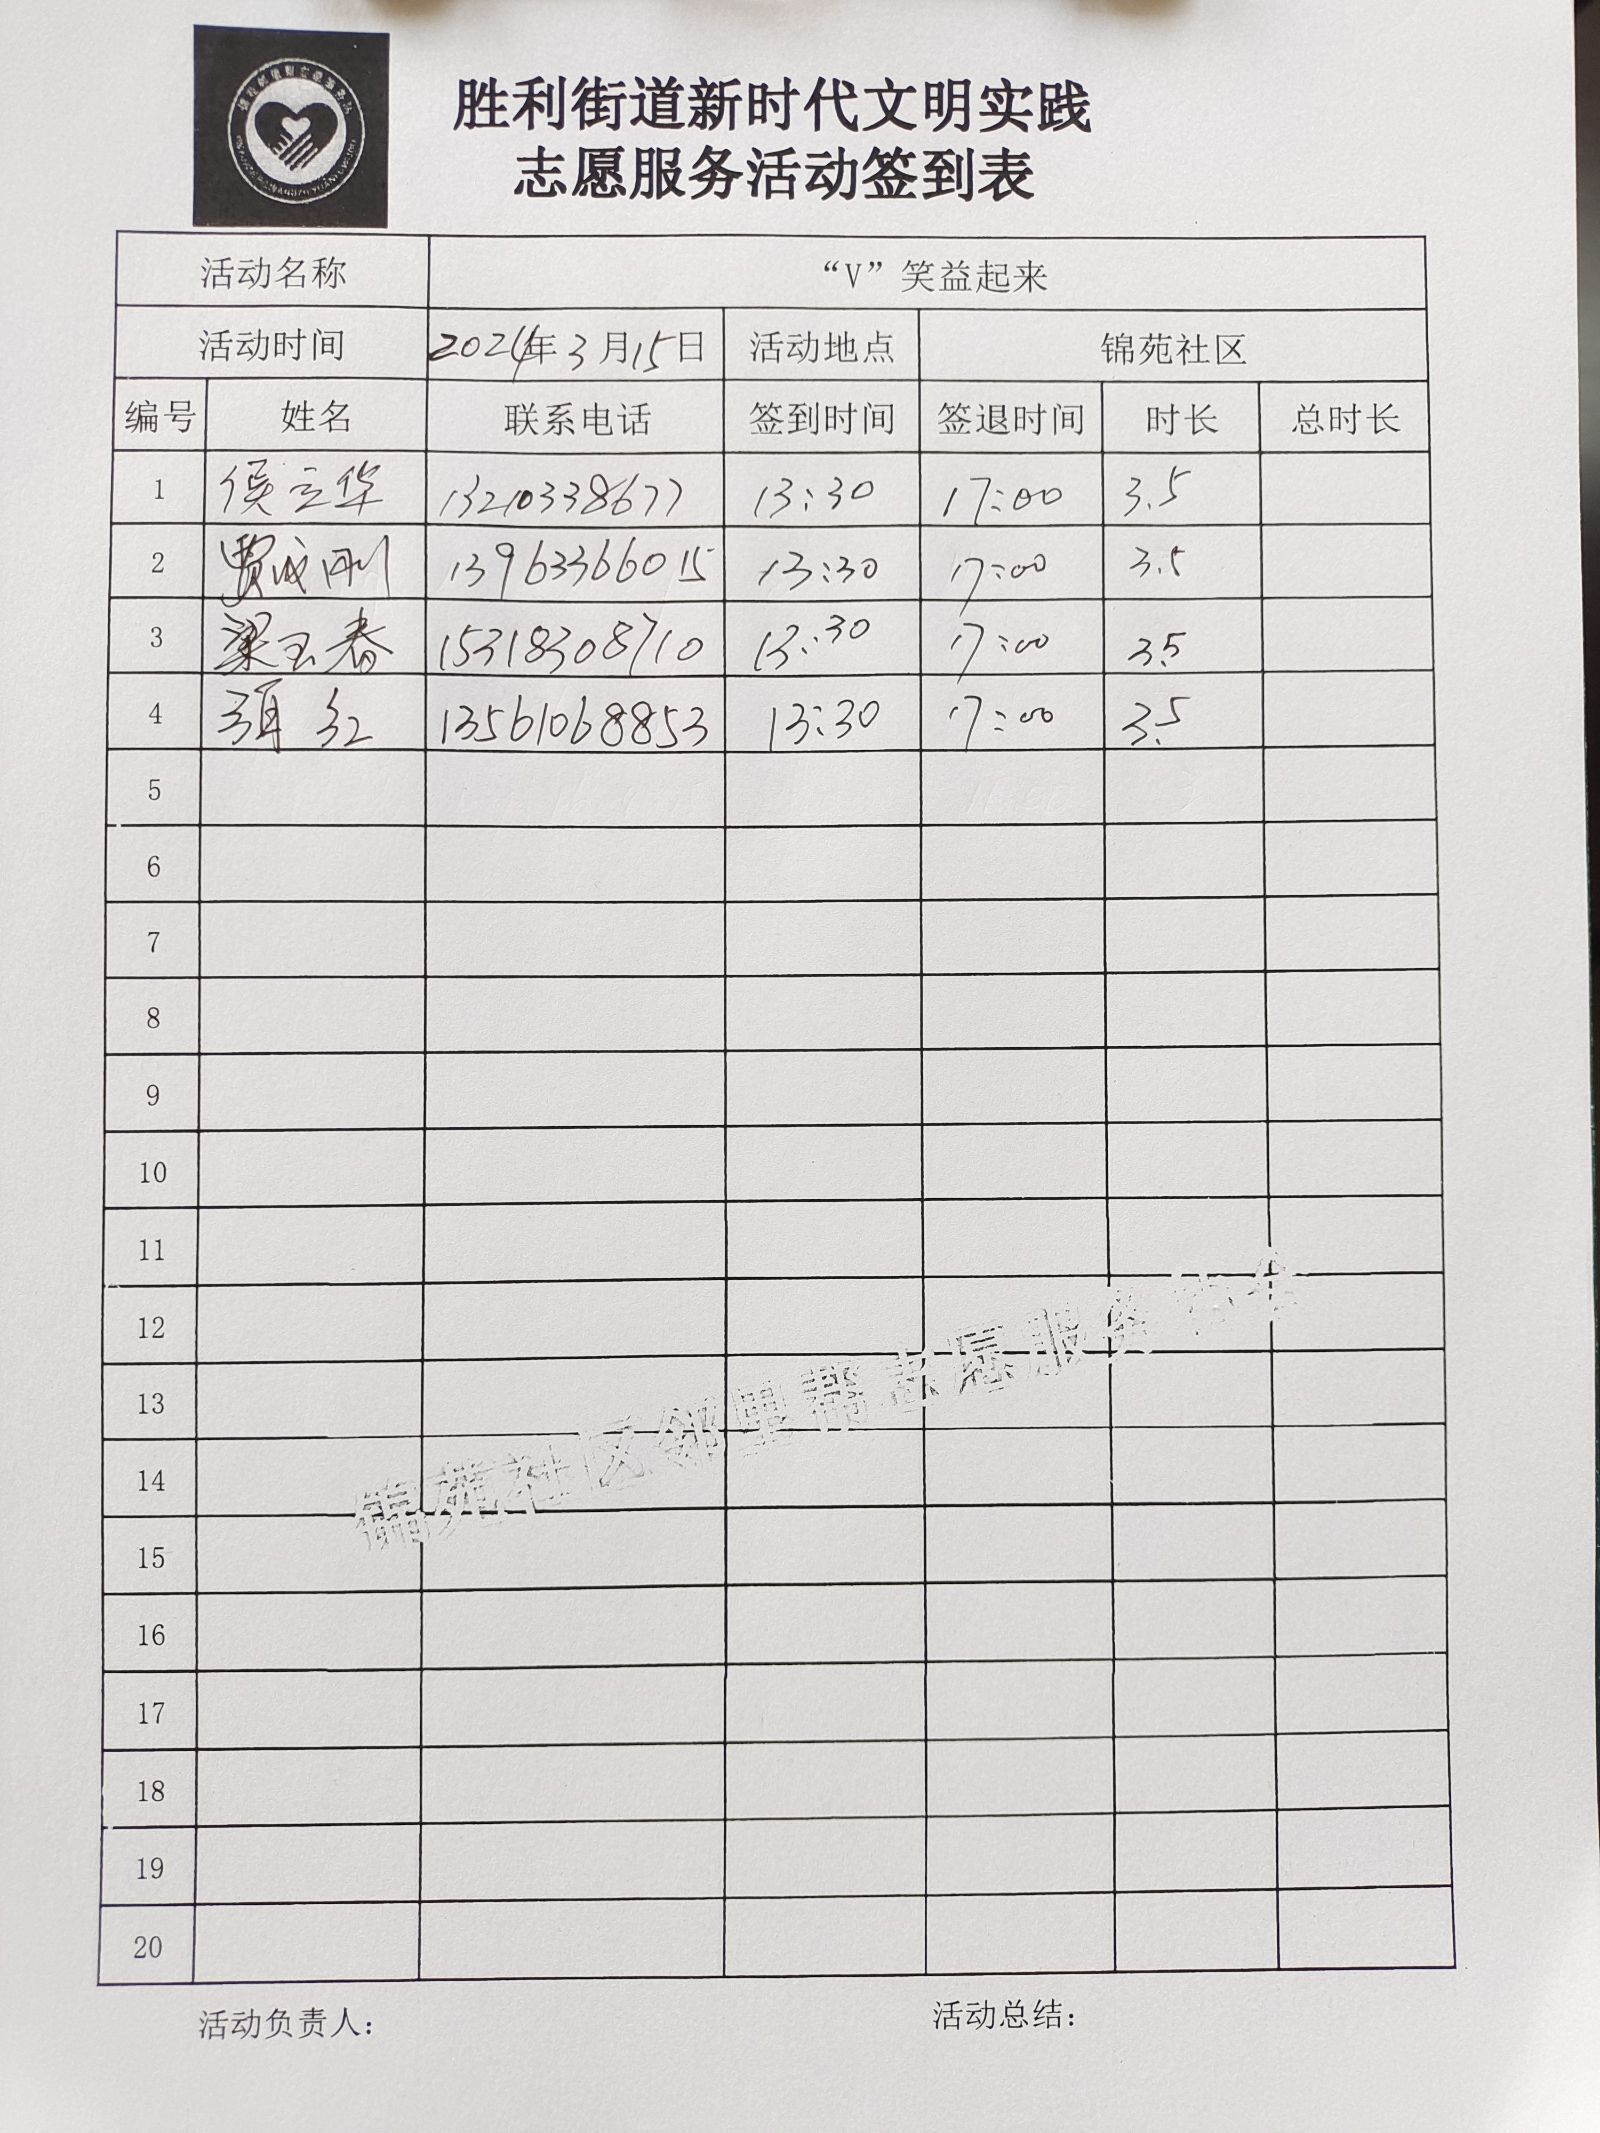 胜利街道新时代文明实践
志愿服务活动签到表
活动名称 “V”笑益起来
活动时间 2024年3月15日 活动地点 锦苑社区
编号 姓名 联系电话 签到时间 签退时间 时长 总时长
1 侯立华 13210338677 13:30 17:00 3.5
2 贾成刚 13963366015 13:30 17:00 3.5
3 梁玉春 15318308710 13:30 17:00 3.5
4 红 13561068853 13:30 17:00 3.5
5
6
7
8
9
10
11
12
13
14
15
16
17
18
19
20
锦苑社区邻里帮志愿服务协会
活动负责人: 活动总结: